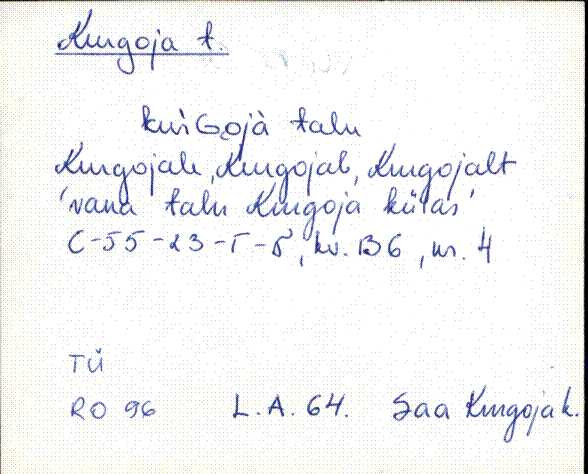 Kurgoja t.
kurGojà talu
Kurgojale, Kurgojal, Kurgojalt
'vana talu Kurgoja külas'
C-55-23-Г-б, kv. B6, nr. 4
TÜ
RO 96 L.A. 64. Saa Kurgoja k.